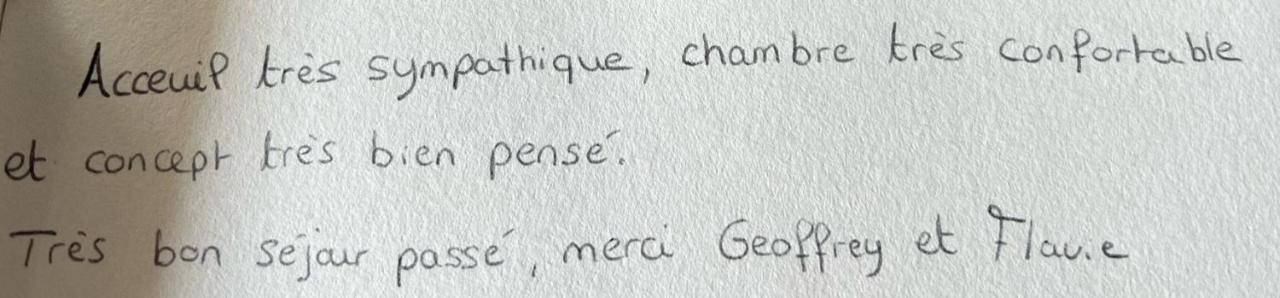 Acceuil très sympathique, chambre très confortable
et concept très bien pensé.
Très bon séjour passé, merci Geoffrey et Flavie